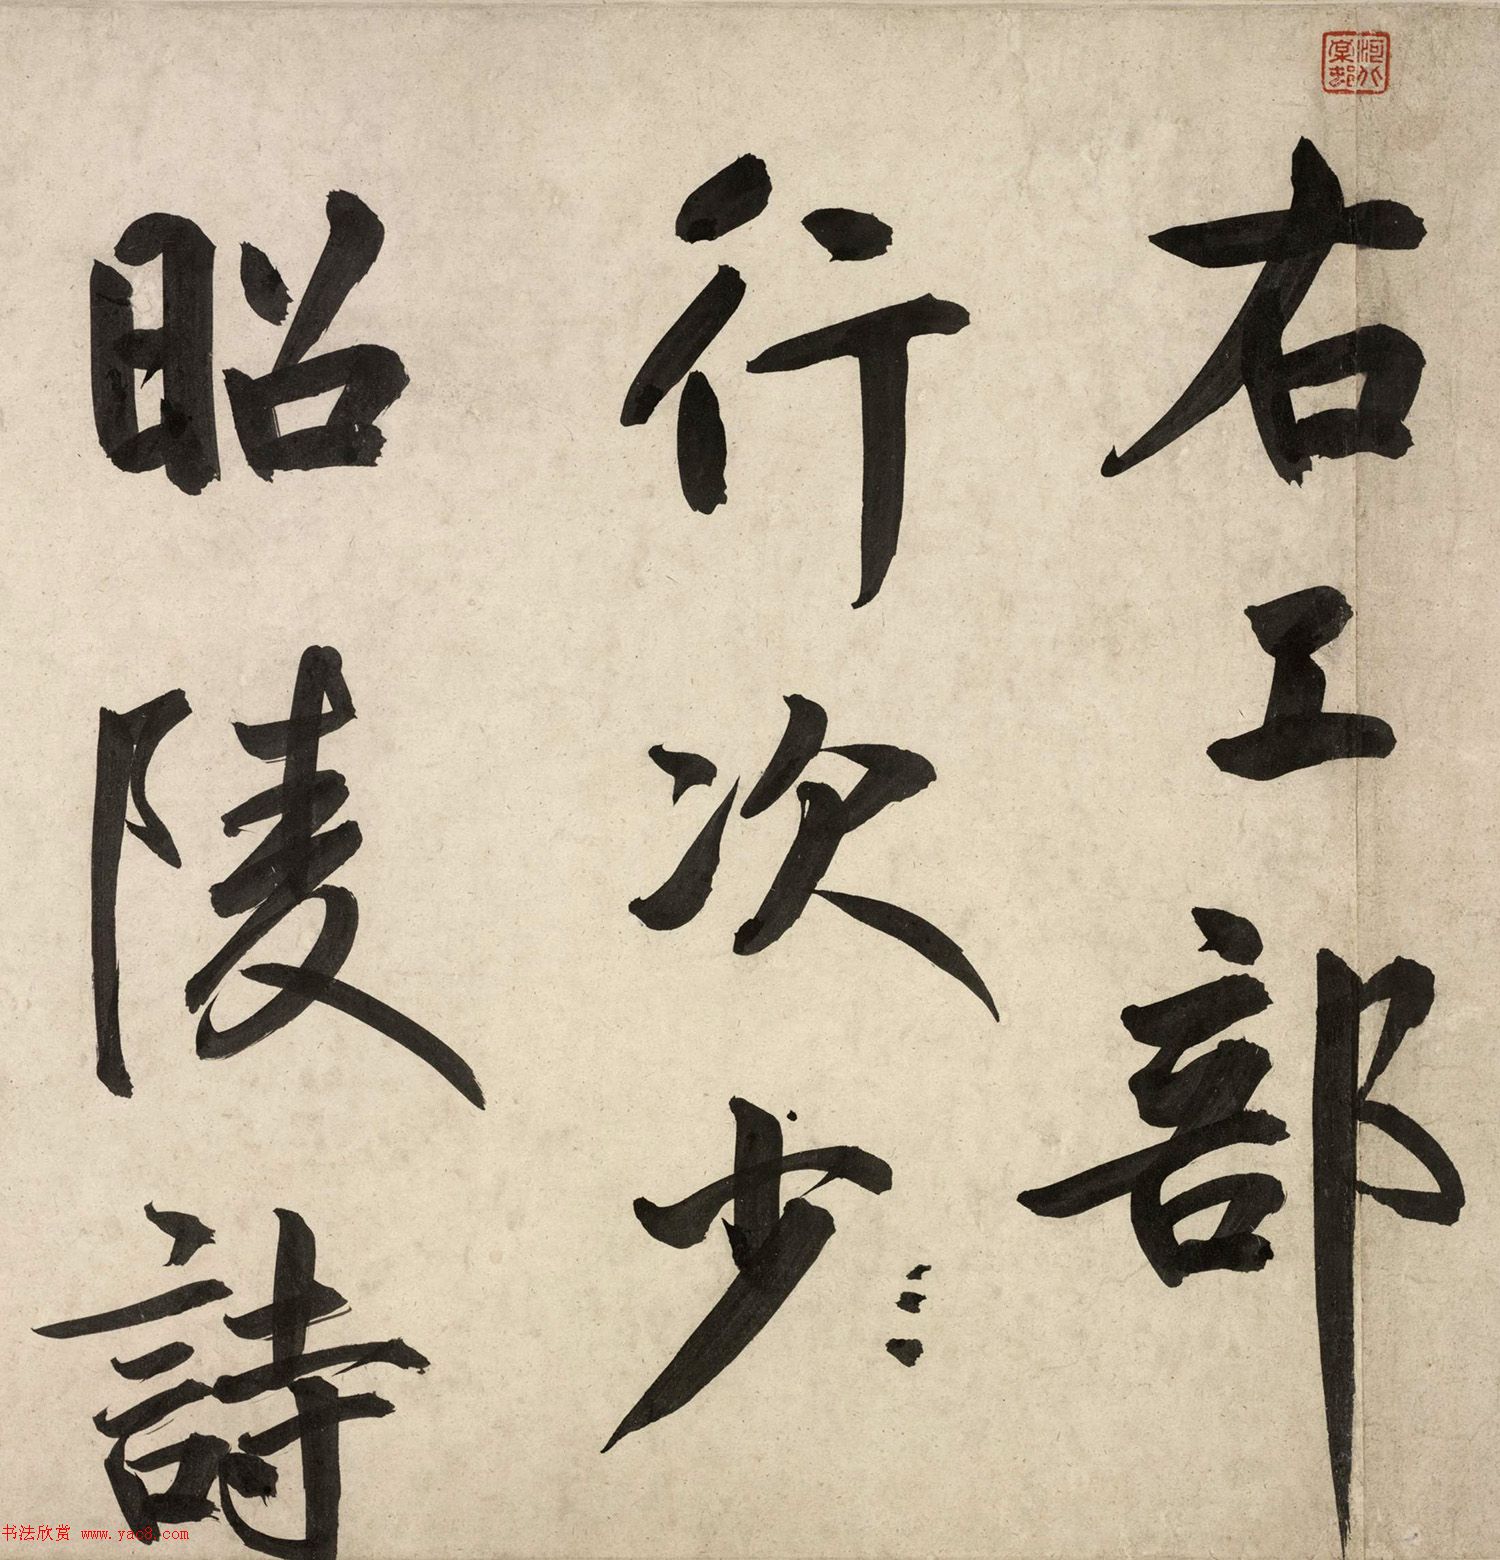 河北棠邨
右工部
行次少
昭陵詩
书法欣赏 www.yac8.com